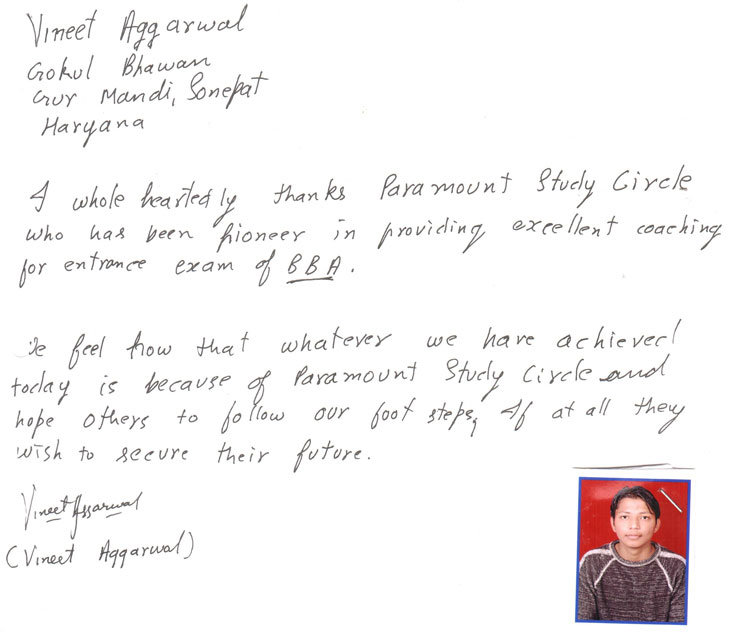 Vineet Aggarwal
Gokul Bhawan
Gur Mandi, Sonepat
Haryana
I whole heartedly thanks Paramount Study Circle
who has been pioneer in providing excellent coaching
for entrance exam of BBA.
We feel that whatever we have achieved
today is because of Paramount Study Circle and
hope others to follow our foot steps, If at all they
wish to secure their future.
Vineet Aggarwal
(Vineet Aggarwal)